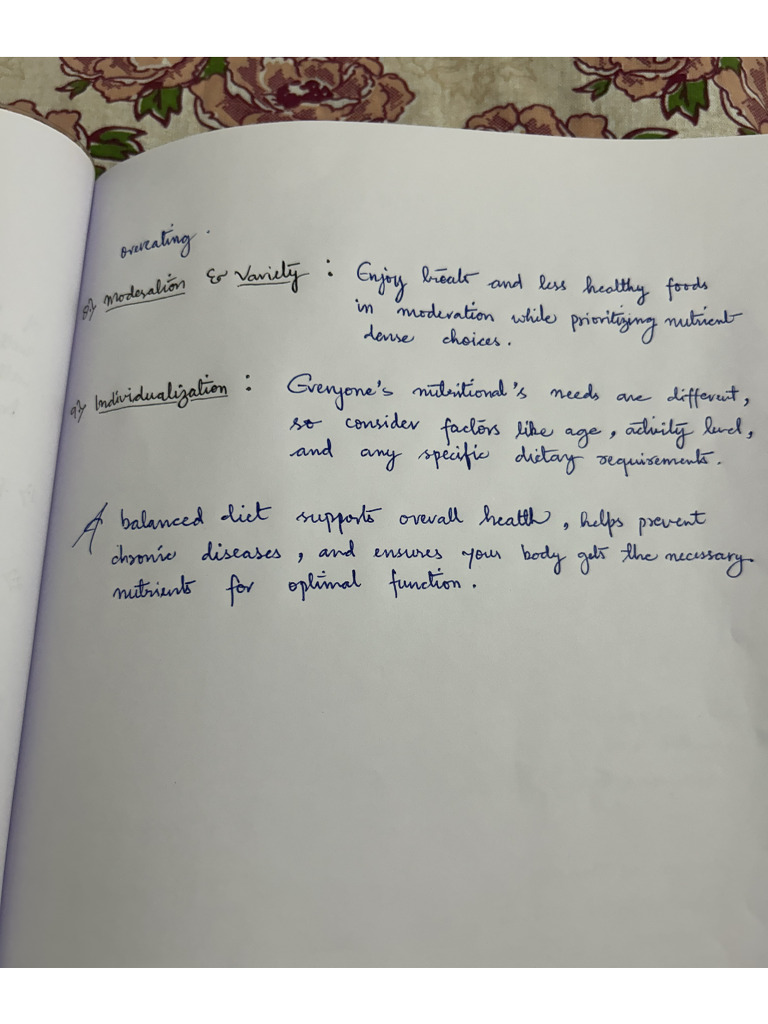 overeating.
8) Moderation & Variety : Enjoy treats and less healthy foods
in moderation while prioritizing nutrient
dense choices.
9) Individualization : Everyone's nutritional's needs are different,
so consider factors like age, activity level,
and any specific dietary requirements.
A balanced diet supports overall health, helps prevent
chronic diseases, and ensures your body gets the necessary
nutrients for optimal function.